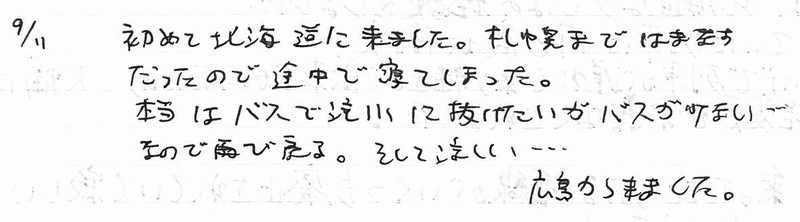 9/11 初めて北海道に来ました。札幌までは
だったので途中で寝てしまった。
本当はバスで滝川に抜けたいがバスがすまい…
なので再び戻る。そして涼しい…
広島から来ました。